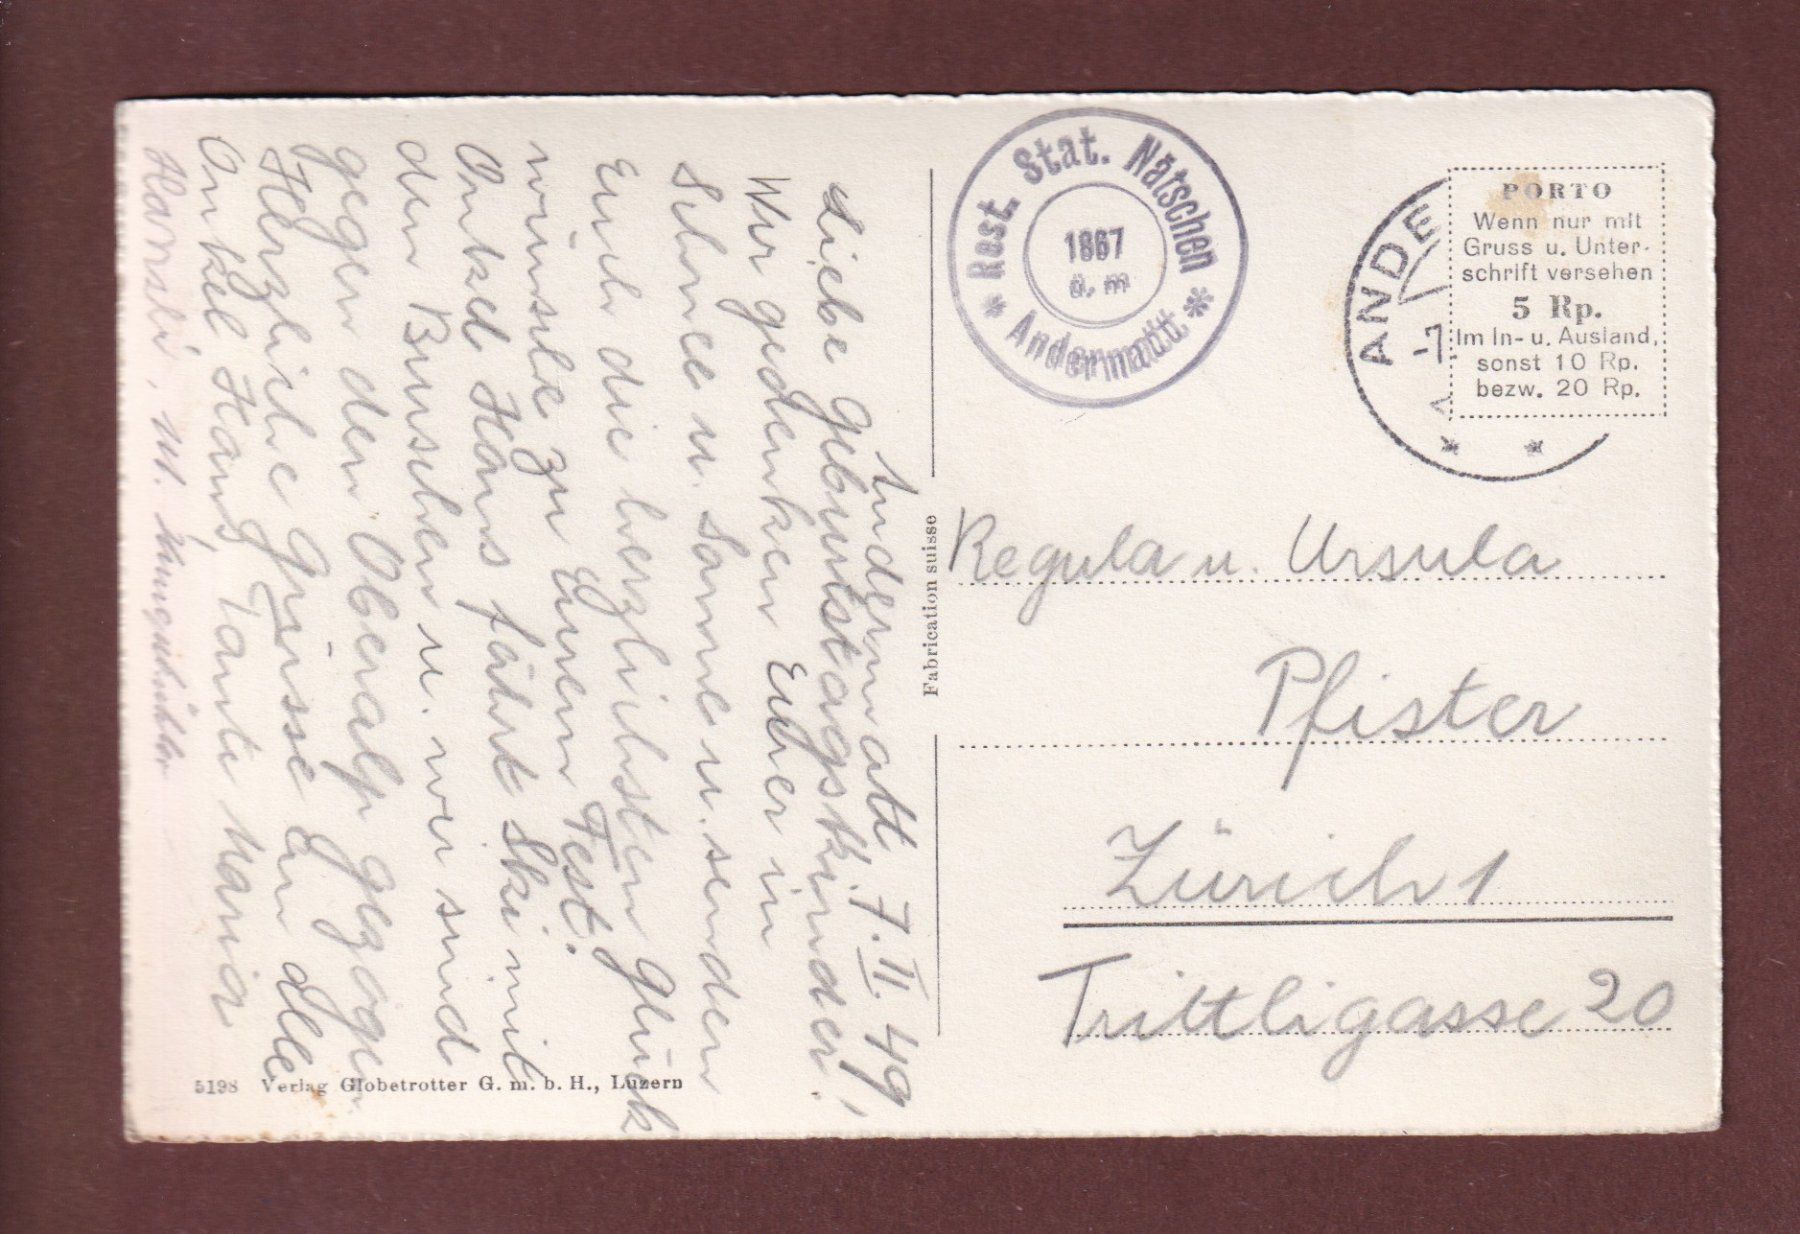 Andermatt 7. II. 49
Liebe Geburtstagskinder!
Wir gedenken Euer in
Schnee u. Sonne u. senden
Euch die herzlichsten Glück
wünsche zu Eurem Fest.
Onkel Hans fährt Ski mit
den Burschen u. wir sind
gegen den Oberalp gezogen
Herzliche Grüsse an alle
Onkel Hans, Tante Maria
Hansli, u.
Rest. Stat. Nätschen
1867
ü. m
* Andermatt *
ANDE
-7.
PORTO
Wenn nur mit
Gruss u. Unter-
schrift versehen
5 Rp.
Im In- u. Ausland,
sonst 10 Rp.
bezw. 20 Rp.
Fabrication suisse
Regula u. Ursula
Pfister
Zürich 1
Trittligasse 20
5198 Verlag Globetrotter G. m. b. H., Luzern